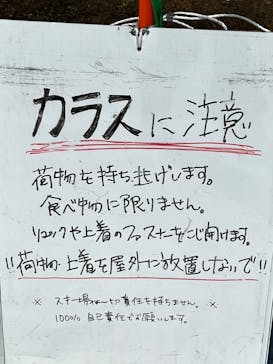 カラスに注意
荷物を持ち逃げします。
食べ物に限りません。
リュックや上着のファスナーもこじ開けます。
!!荷物・上着を屋外に放置しないで!!
※ スキー場は一切責任を持ちません。 ※
100% 自己責任でお願いします。